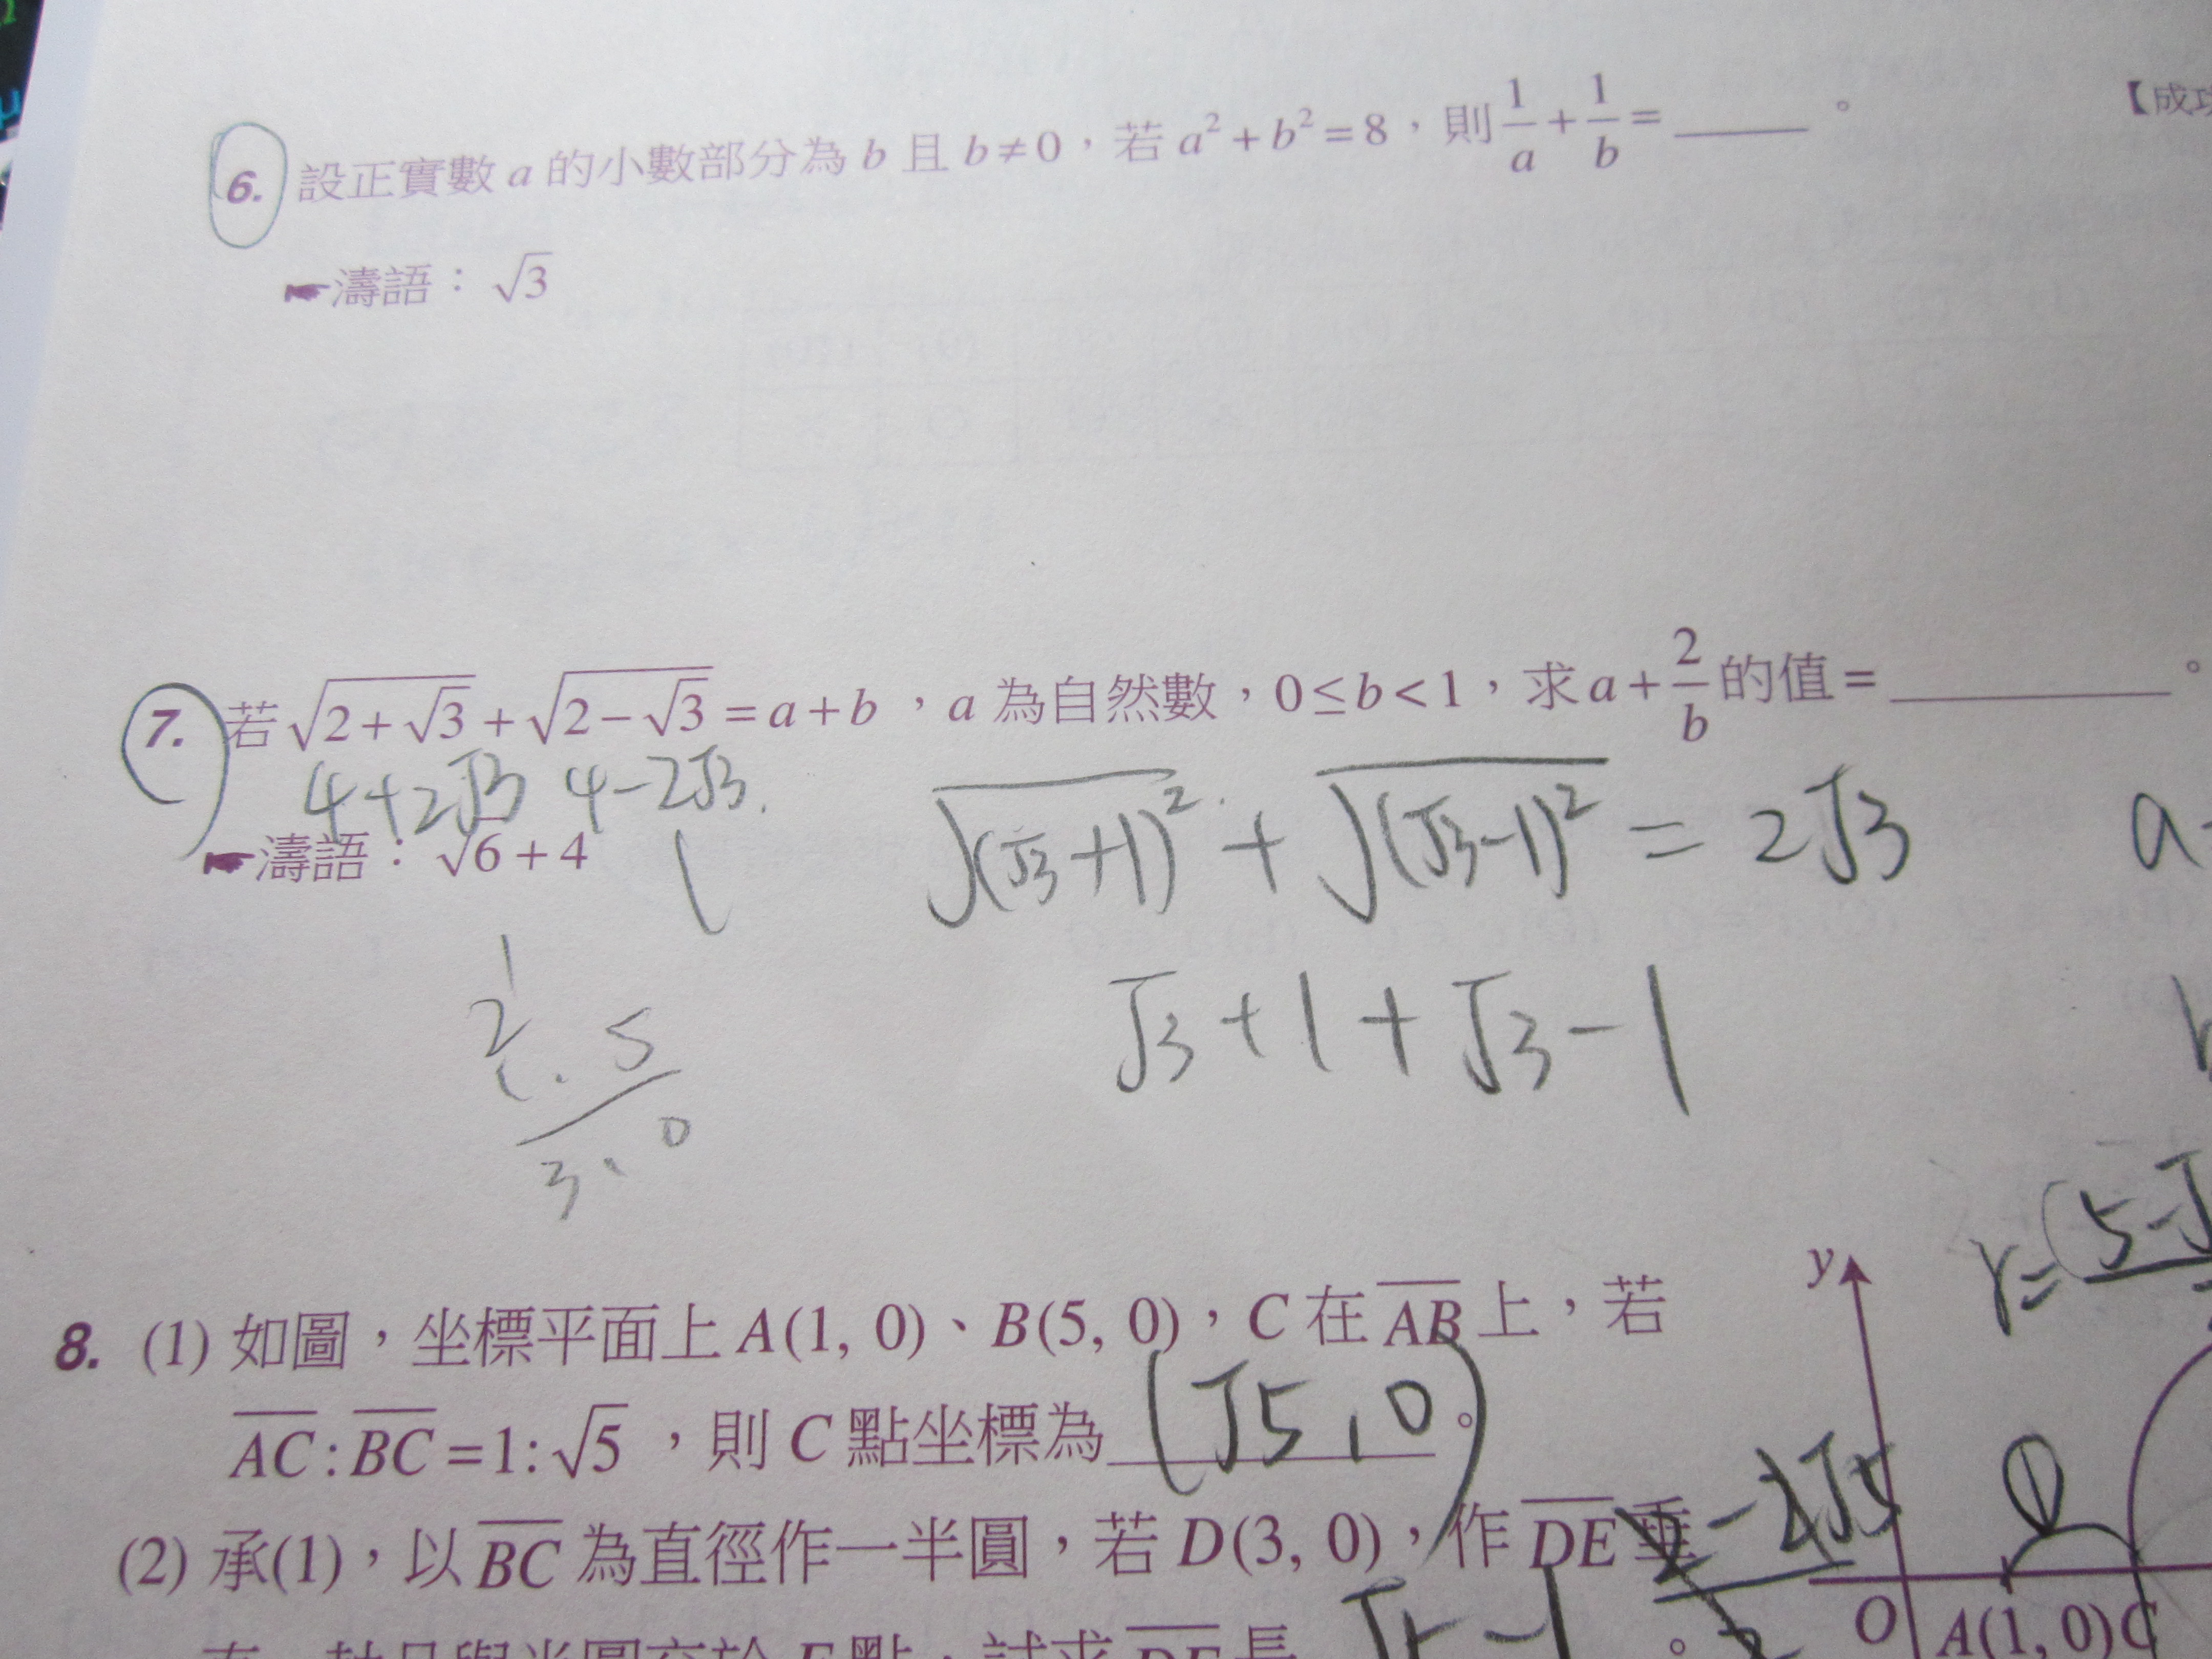 6. 設正實數 a 的小數部分為 b 且 b≠0,若 a²+b²=8,則 1/a + 1/b = ______。 【成功
☛濤語:√3
7. 若 √(2+√3) + √(2−√3) = a+b ,a 為自然數,0≤b<1,求 a+ 2/b 的值=______。
4+2√3 4−2√3
√(√3+1)² + √(√3−1)² = 2√3 a
☛濤語:√6+4
√3+1+√3−1
1
2
1.5
3.0
r=(5−√
y
8. (1) 如圖,坐標平面上 A(1, 0)、B(5, 0),C 在 AB 上,若
AC:BC=1:√5 ,則 C 點坐標為 (√5, 0) 。
(2) 承(1),以 BC 為直徑作一半圓,若 D(3, 0),作 DE 垂
O A(1, 0) C
1